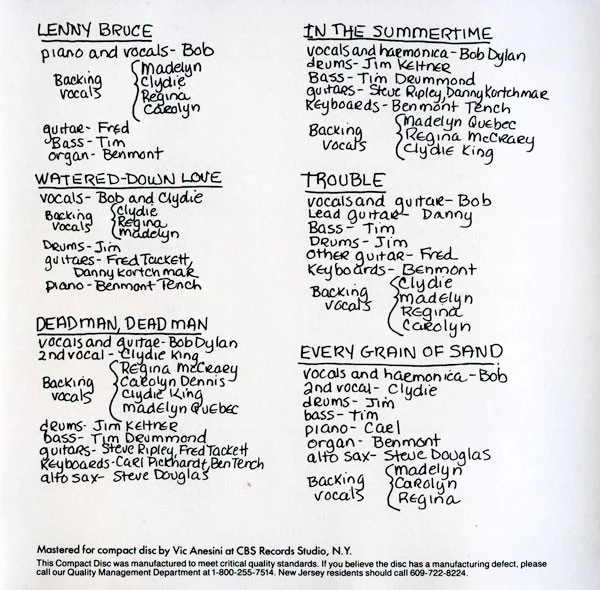 LENNY BRUCE
piano and vocals- Bob
Backing vocals
Madelyn
Clydie
Regina
Carolyn
guitar- Fred
Bass- Tim
organ- Benmont
WATERED-DOWN LOVE
vocals- Bob and Clydie
Backing vocals
Clydie
Regina
Madelyn
Drums- Jim
guitars- Fred Tackett,
Danny Kortchmar
piano- Benmont Tench
DEAD MAN, DEAD MAN
vocals and guitar- Bob Dylan
2nd vocal- Clydie King
Backing vocals
Regina McCreary
Carolyn Dennis
Clydie King
Madelyn Quebec
drums- Jim Keltner
bass- Tim Drummond
guitars- Steve Ripley, Fred Tackett
Keyboards- Carl Pickhardt, Ben Tench
alto sax- Steve Douglas
IN THE SUMMERTIME
vocals and harmonica- Bob Dylan
drums- Jim Keltner
Bass- Tim Drummond
guitars- Steve Ripley, Danny Kortchmar
Keyboards- Benmont Tench
Backing vocals
Madelyn Quebec
Regina McCreary
Clydie King
TROUBLE
vocals and guitar- Bob
Lead guitar- Danny
Bass- Tim
Drums- Jim
other guitar- Fred
Keyboards- Benmont
Backing vocals
Clydie
Madelyn
Regina
Carolyn
EVERY GRAIN OF SAND
vocals and harmonica- Bob
2nd vocal- Clydie
drums- Jim
bass- Tim
piano- Carl
organ- Benmont
alto sax- Steve Douglas
Backing vocals
Madelyn
Carolyn
Regina
Mastered for compact disc by Vic Anesini at CBS Records Studio, N.Y.
This Compact Disc was manufactured to meet critical quality standards. If you believe the disc has a manufacturing defect, please
call our Quality Management Department at 1-800-255-7514. New Jersey residents should call 609-722-8224.